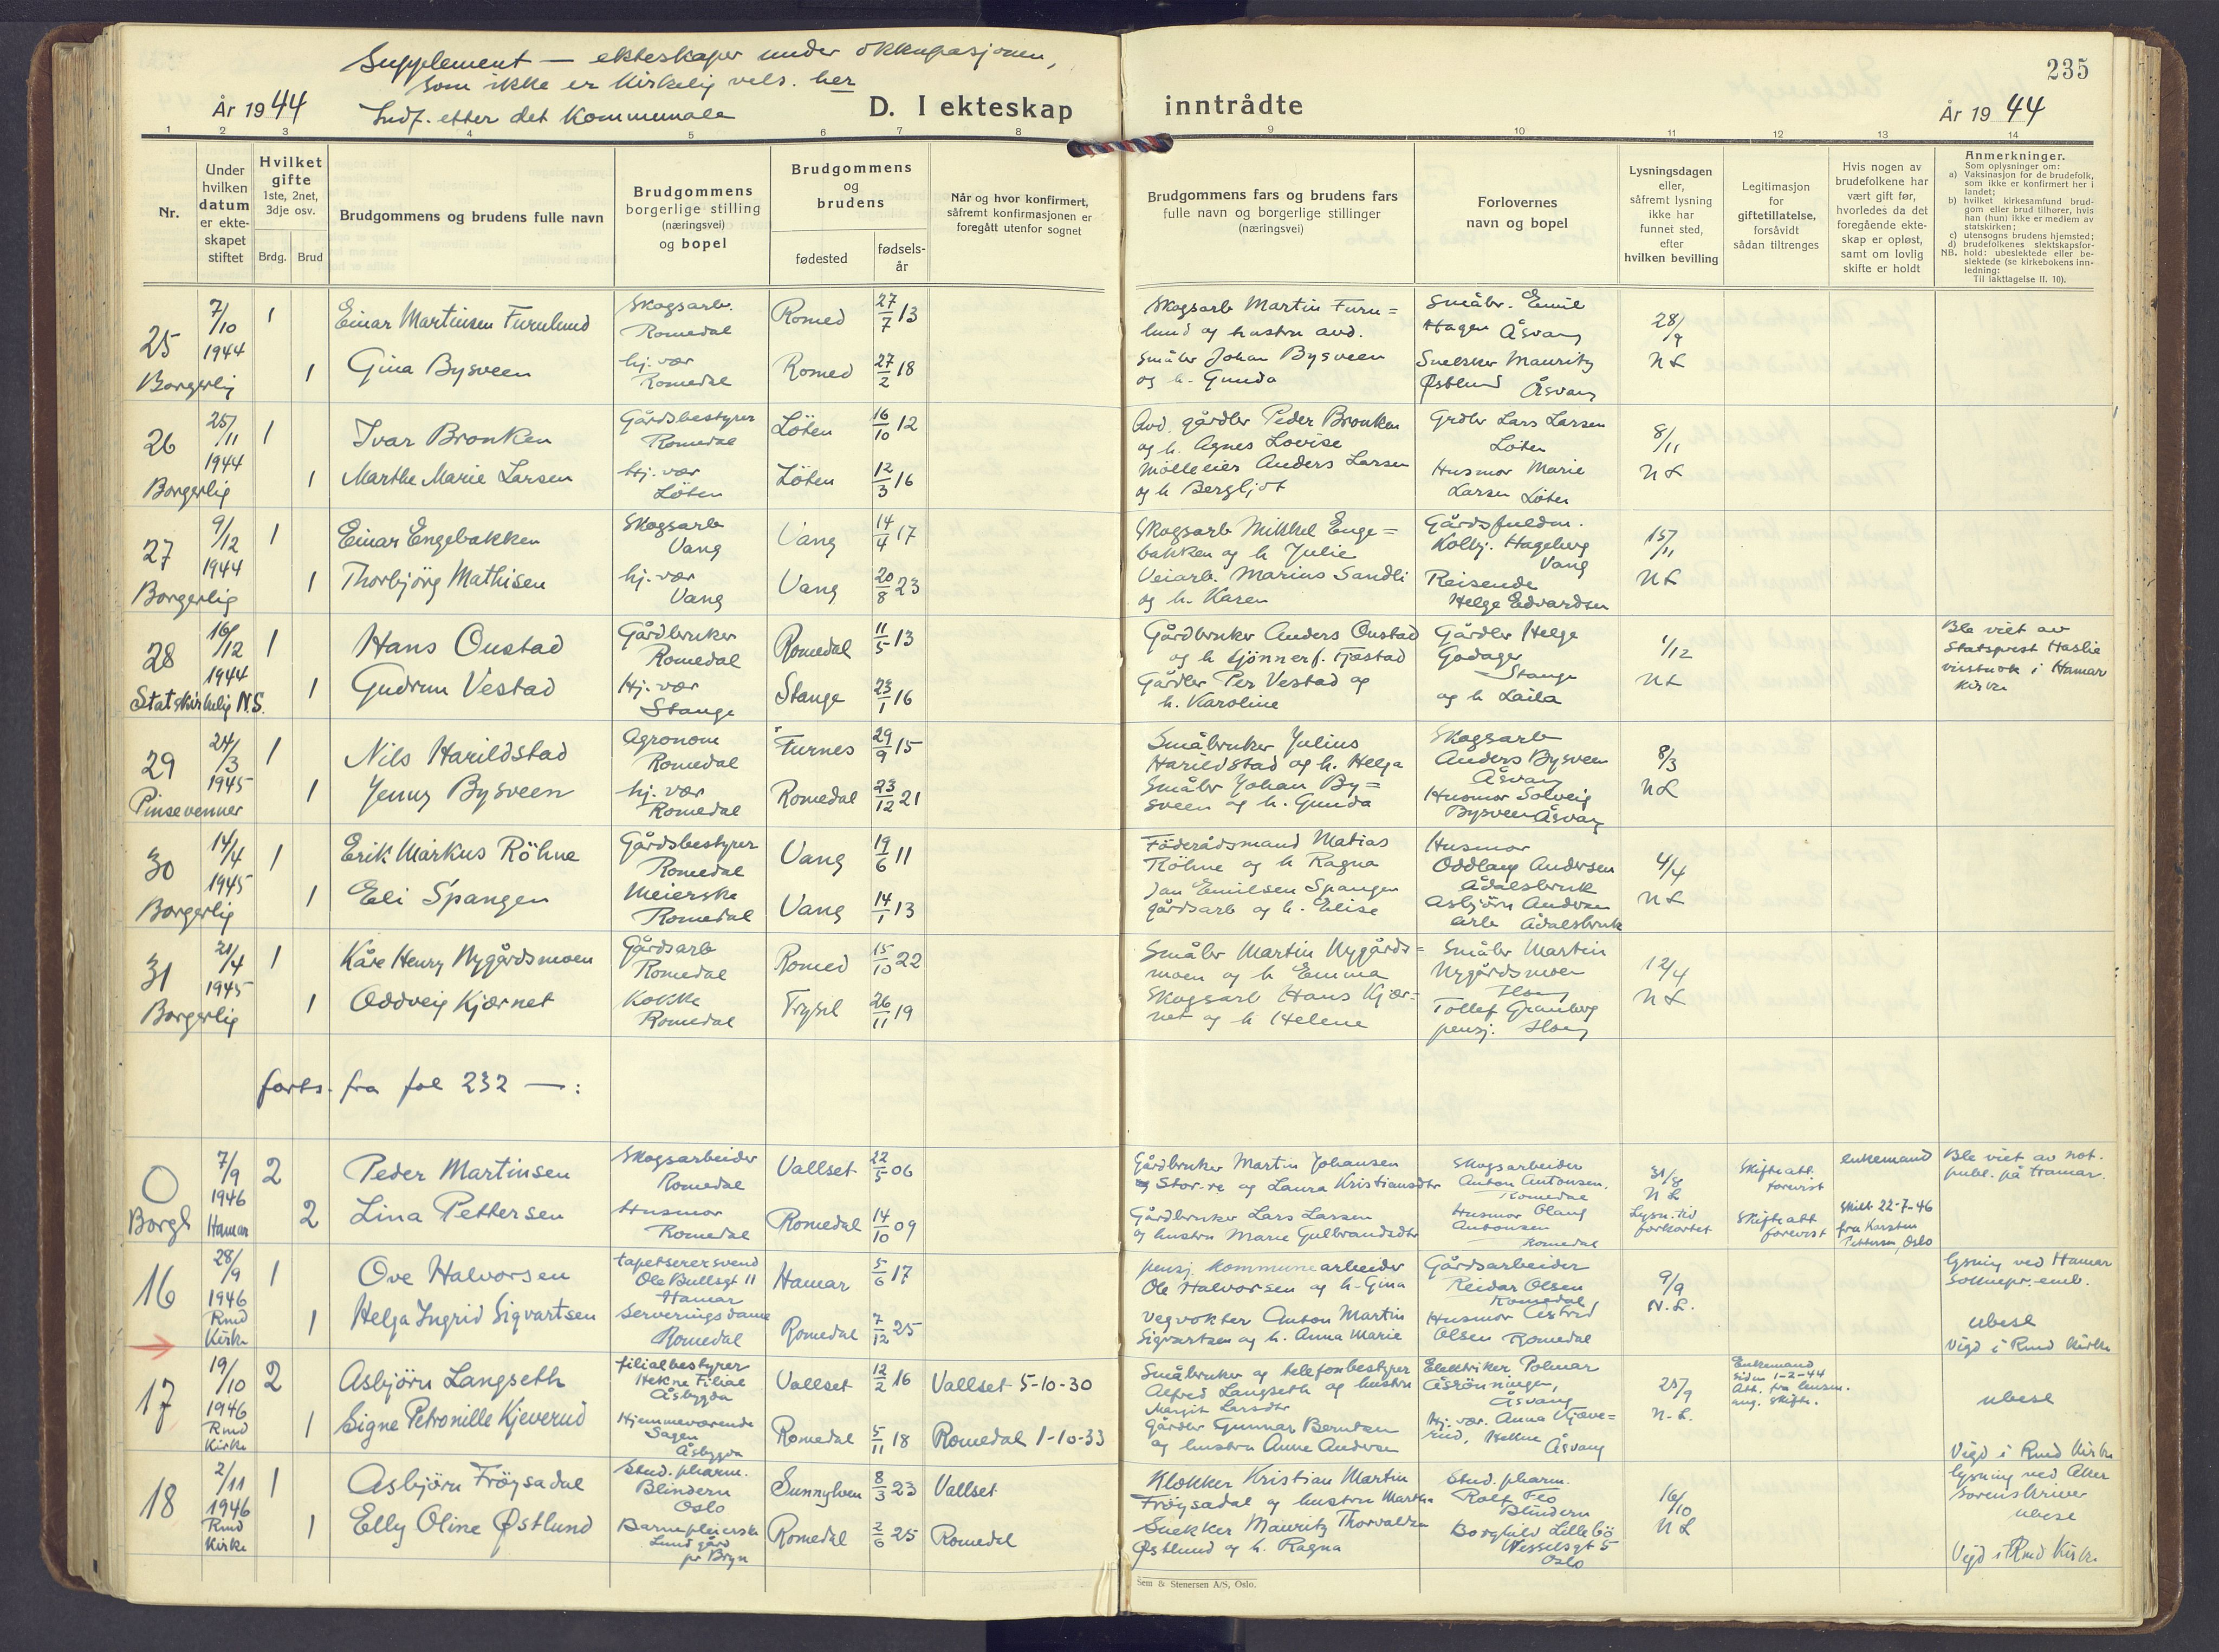 Supplement — ekteskaper under okkupasjonen,
som ikke er kirkelig vels. her
Indf. etter det kommunale
235
År 1944
D. I ekteskap inntrådte
År 1944
1 2 3 4 5 6 7 8 9 10 11 12 13 14
Nr.
Under
hvilken
datum
er ekte-
skapet
stiftet
Hvilket
gifte
1ste, 2net,
3dje osv.
Brdg. Brud
Brudgommens og brudens fulle navn
Brudgommens
borgerlige stilling
(næringsvei)
og bopel
Brudgommens
og
brudens
fødested
fødsels-
år
Når og hvor konfirmert,
såfremt konfirmasjonen er
foregått utenfor sognet
Brudgommens fars og brudens fars
fulle navn og borgerlige stillinger
(næringsvei)
Forlovernes
navn og bopel
Lysningsdagen
eller,
såfremt lysning
ikke har
funnet sted,
efter
hvilken bevilling
Legitimasjon
for
giftetillatelse,
forsåvidt
sådan tiltrenges
Hvis nogen av
brudefolkene har
vært gift før,
hvorledes da det
foregående ekte-
skap er opløst,
samt om lovlig
skifte er holdt
Anmerkninger.
Som oplysninger om:
a) Vaksinasjon for de brudefolk,
som ikke er konfirmert her i
landet;
b) hvilket kirkesamfund brud-
gom eller brud tilhører, hvis
han (hun) ikke er medlem av
statskirken;
c) utensogns brudens hjemsted;
d) brudefolkenes slektskapsfor-
hold: ubeslektede eller be-
slektede (se kirkebokens inn-
ledning:
NB. Til iakttagelse II. 10).
25
7/10
1944
Borgerlig
1
Einar Martinsen Furulund
Skogsarb.
Romedal
Romed
27/7 13
Skogsarb Martin Furu=
lund og hustru avd.
Småbr. Emil
Hagen Åsvang
28/9
NL
1
Gina Bysveen
hj. vær
Romedal
Romed
27/2 18
Småbr Johan Bysveen
og h. Gunda
Snekker Mauritz
Østlund Åsvang
26
25/11
1944
Borgerlig
1
Ivar Bronken
Gårdsbestyrer
Romedal
Löten
16/10 12
Avd. gårdbr Peder Bronken
og h. Agnes Lovise
Grdbr Lars Larsen
Löten
8/11
NL
1
Marthe Marie Larsen
hj. vær
Löten
Löten
12/3 16
Mölleeier Anders Larsen
og h Bergljot
Husmor Marie
Larsen Löten
27
9/12
1944
Borgerlig
1
Einar Engebakken
Skogsarb
Vang
Vang
14/4 17
Skogsarb Mikkel Enge=
bakken og h Julie
Gårdsfuldm.
Kolbj. Hageberg
Vang
15/11
NL
1
Thorbjörg Mathisen
hj. vær
Vang
Vang
20/8 23
Veiarb. Marius Sandli
og h. Karen
Reisende
Helge Edvardsen
28
16/12
1944
Statskirkelig N.S.
1
Hans Oustad
Gårdbruker
Romedal
Romedal
11/5 13
Gårdbruker Anders Oustad
og h Fjæstad
Gårdbr Helge
Godager
Stange
1/12
NL
Ble viet av
Statsprest Haslie
visstnok i Hamar
kirke
1
Gudrun Vestad
Hj. vær
Stange
Stange
23/1 16
Gårdbr Per Vestad og
h. Karoline
og h Laila
29
24/3
1945
Pinsevenner
1
Nils Harildstad
Agronom
Romedal
Furnes
29/9 15
Småbruker Julius
Harildstad og h. Helga
Skogsarb
Anders Bysveen
Åsvang
8/3
NL
1
Jenny Bysveen
hj. vær
Romedal
Romedal
23/12 21
Småbr Johan By=
sveen og h. Gunda
Husmor Solveig
Bysveen Åsvang
30
14/4
1945
Borgerlig
1
Erik Markus Röhne
Gårdsbestyrer
Romedal
Vang
19/6 11
Föderådsmand Matias
Röhne og h Ragna
Husmor
Oddlaug Andersen
Ådalsbruk
4/4
NL
1
Eli Spangen
Meierske
Romedal
Vang
14/1 13
Jan Emilsen Spangen
gårdsarb og h. Elise
Asbjörn Andersen
arb Ådalsbruk
31
21/4
1945
Borgerlig
1
Kåre Henry Nygårdsmoen
Gårdsarb
Romedal
Romed
15/10 22
Småbr Martin Nygårds=
moen og h Emma
Småbr Martin
Nygårdsmoen
Ilseng
12/4
NL
1
Oddveig Kjærnet
Kokke
Romedal
Trysil
26/11 19
Skogsarb Hans Kjær=
net og h Helene
Tollef Granberg
pensj. Ilseng
forts. fra fol 232 —:
O
7/9
1946
Borgl Hamar
2
Peder Martinsen
Skogsarbeider
Romedal
Vallset
22/5 06
Gårdbruker Martin Johansen
Stor-re og Laura Kristiansdtr
Skogsarbeider
Anton Antonsen.
Romedal
31/8
NL
Skifteatt.
forevist
enkemand
Ble viet av not.
publ. på Hamar.
2
Lina Pettersen
Husmor
Romedal
Romedal
14/10 09
Gårdbruker Lars Larsen
og hustru Marie Gulbrandsdtr
Husmor Olaug
Antonsen
Romedal
Lysn. tid
forkortet
Skifteatt
forevist
Skilt 22-7-46
fra Karsten
Pettersen, Oslo
16
28/9
1946
Rmd
Kirke
1
Ove Halvorsen
tapetserersvend
Ole Bullsgt 11
Hamar
Hamar
5/6 17
pensj. kommunearbeider
Ole Halvorsen og h. Gina
Gårdsarbeider
Reidar Olsen
Romedal
9/9
N.L.
lysning ved Hamar
Sognepr. emb.
1
Helga Ingrid Sigvartsen
Serveringsdame
Romedal
Romedal
7/12 25
Vegvokter Anton Martin
Sigvartsen og h. Anna Marie
Husmor Astrid
Olsen Romedal
ubesl
Vigd i Rmd Kirke
17
19/10
1946
Rmd
Kirke
2
Asbjörn Langseth
filialbestyrer
Hekne Filial
Åsbygda
Vallset
12/2 16
Vallset 5-10-30
Småbruker og telefonbestyrer
Alfred Langseth og hustru
Margit Larsdtr
Elektriker Polmar
Åsrönningen,
Åsvang
25/9
N.L.
Enkemand
siden 1-2-44
Att. fra lensm.
ang. skifte.
ubesl
1
Signe Petronille Kjeverud
Hjemmeværende
Sagen
Åsbygda
Romedal
5/11 18
Romedal 1-10-33
Gårdbr Gunnar Berntsen
og hustru Anne Andersen
Hj. vær. Anna Kjæve=
rud, Åsvang
Vigd i Rmd Kirke
18
2/11
1946
Rmd
Kirke
1
Asbjörn Fröysadal
Stud. pharm.
Blindern
Oslo
Sunnylven
8/3 23
Vallset
Klokker Kristian Martin
Fröysadal og hustru Martha
Stud. pharm.
Rolf Flo
Blindern
16/10
NL
lysning ved Aker
Sorenskriver
ubesl
1
Elly Oline Østlund
Barnepleierske
Lund gård
pr Bryn
Romedal
2/6 25
Romedal
Snekker Mauritz Thorvaldsen
Østlund og h. Ragna
Borghild Lillebö
Wesselsgt 5
Oslo
Vigd i Rmd Kirke
Sem & Stenersen A/S, Oslo.